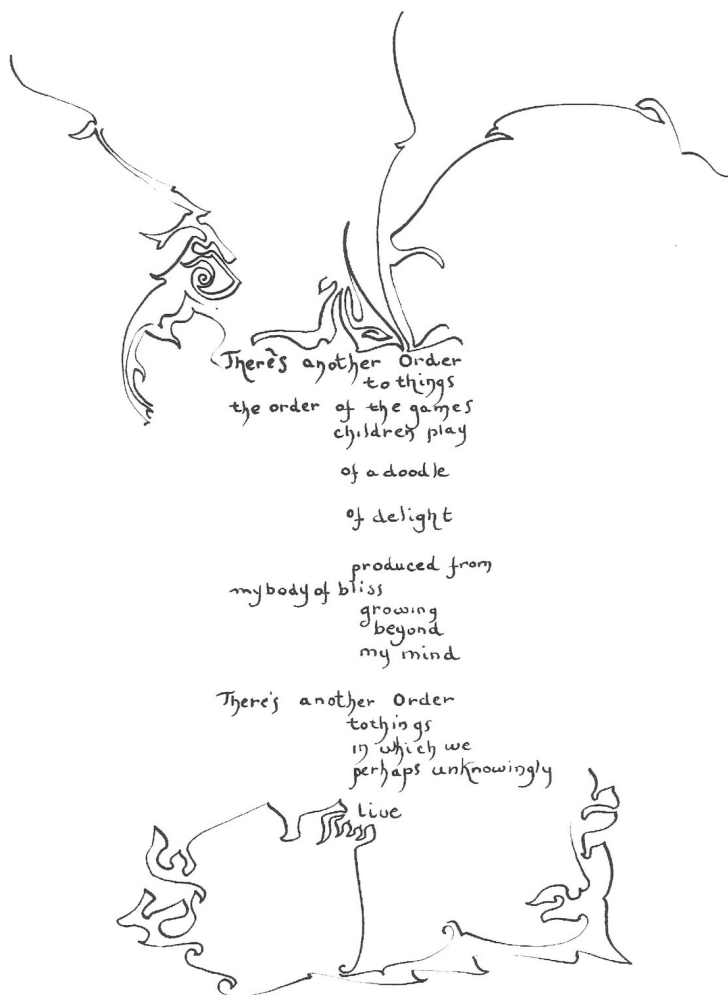 There's another Order
to things
the order of the games
children play
of a doodle
of delight
produced from
my body of bliss
growing
beyond
my mind
There's another Order
to things
in which we
perhaps unknowingly
live